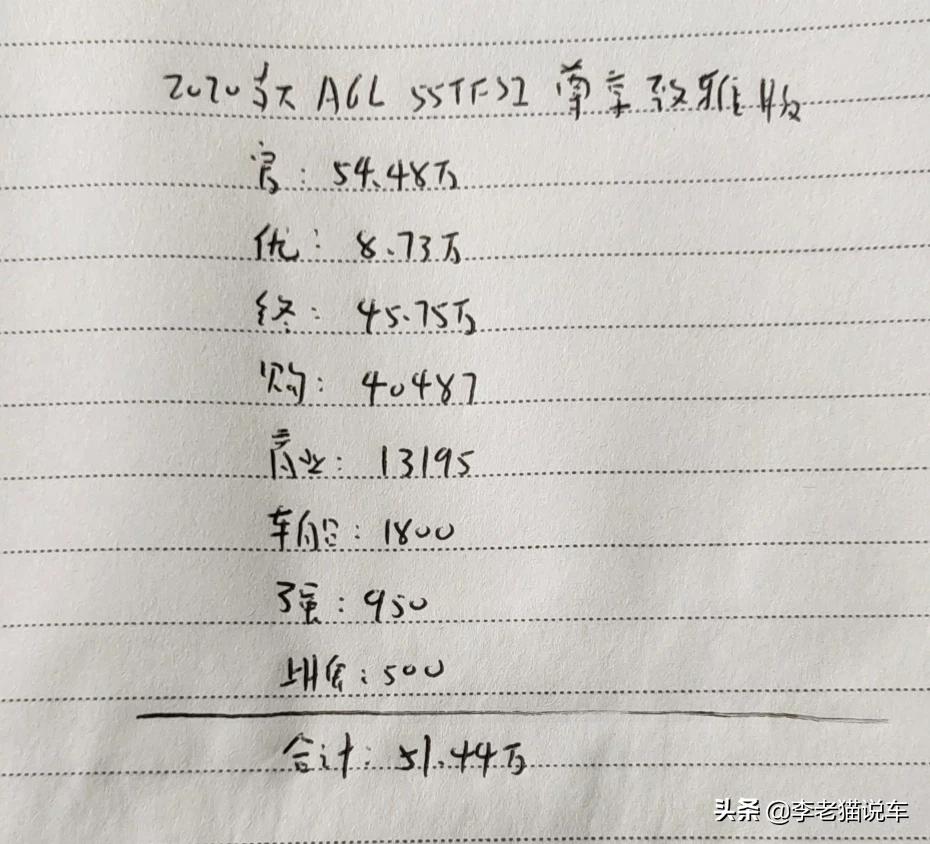 2020款 A6L 55TFSI 尊享致雅版
官: 54.48万
优: 8.73万
终: 45.75万
购: 40487
商业: 13195
车船: 1800
强: 950
上牌: 500
合计: 51.44万
头条 @李老猫说车